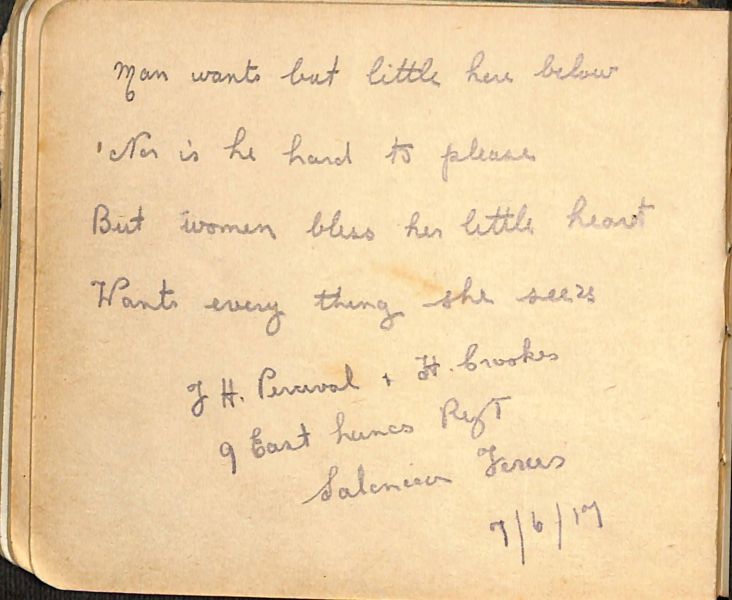 Man wants but little here below
'Nor is he hard to please
But women bless her little heart
Wants every thing she sees
J H. Percival + H. Crookes
9 East Lancs Regt
Salonica
7/6/17